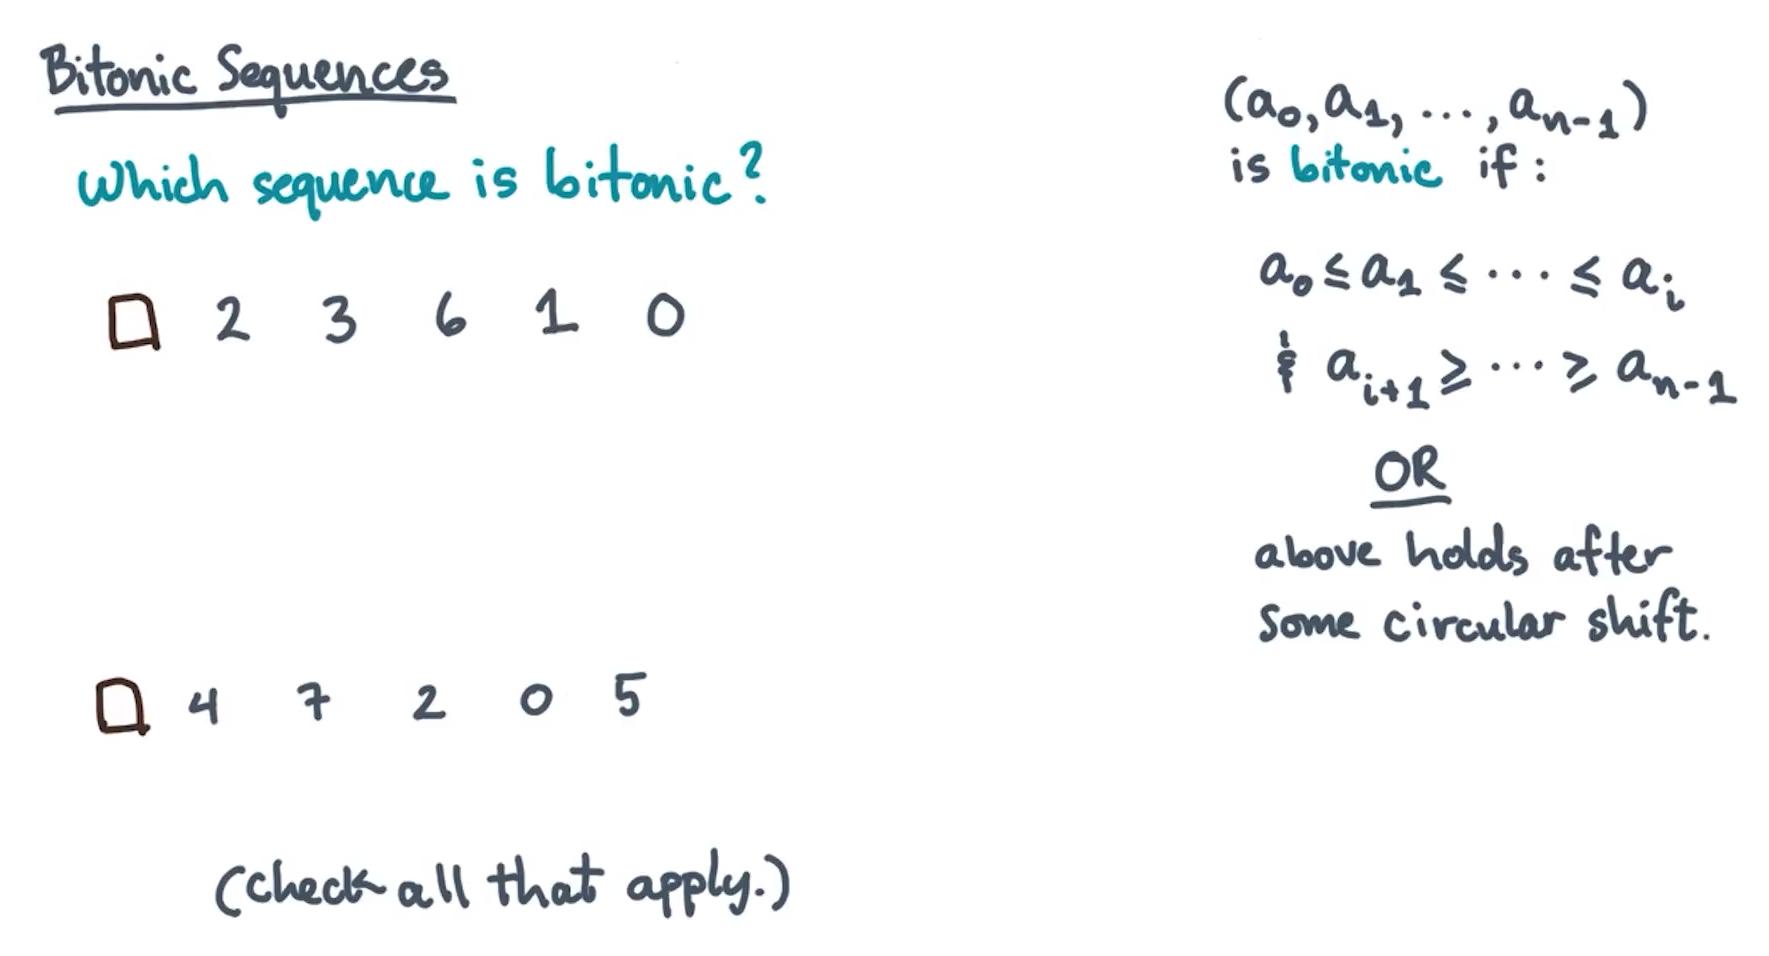 Bitonic Sequences
Which sequence is bitonic?
2 3 6 1 0
4 7 2 0 5
(check all that apply.)
(a₀, a₁, ..., aₙ₋₁)
is bitonic if:
a₀ ≤ a₁ ≤ ... ≤ aᵢ
& aᵢ₊₁ ≥ ... ≥ aₙ₋₁
OR
above holds after
some circular shift.